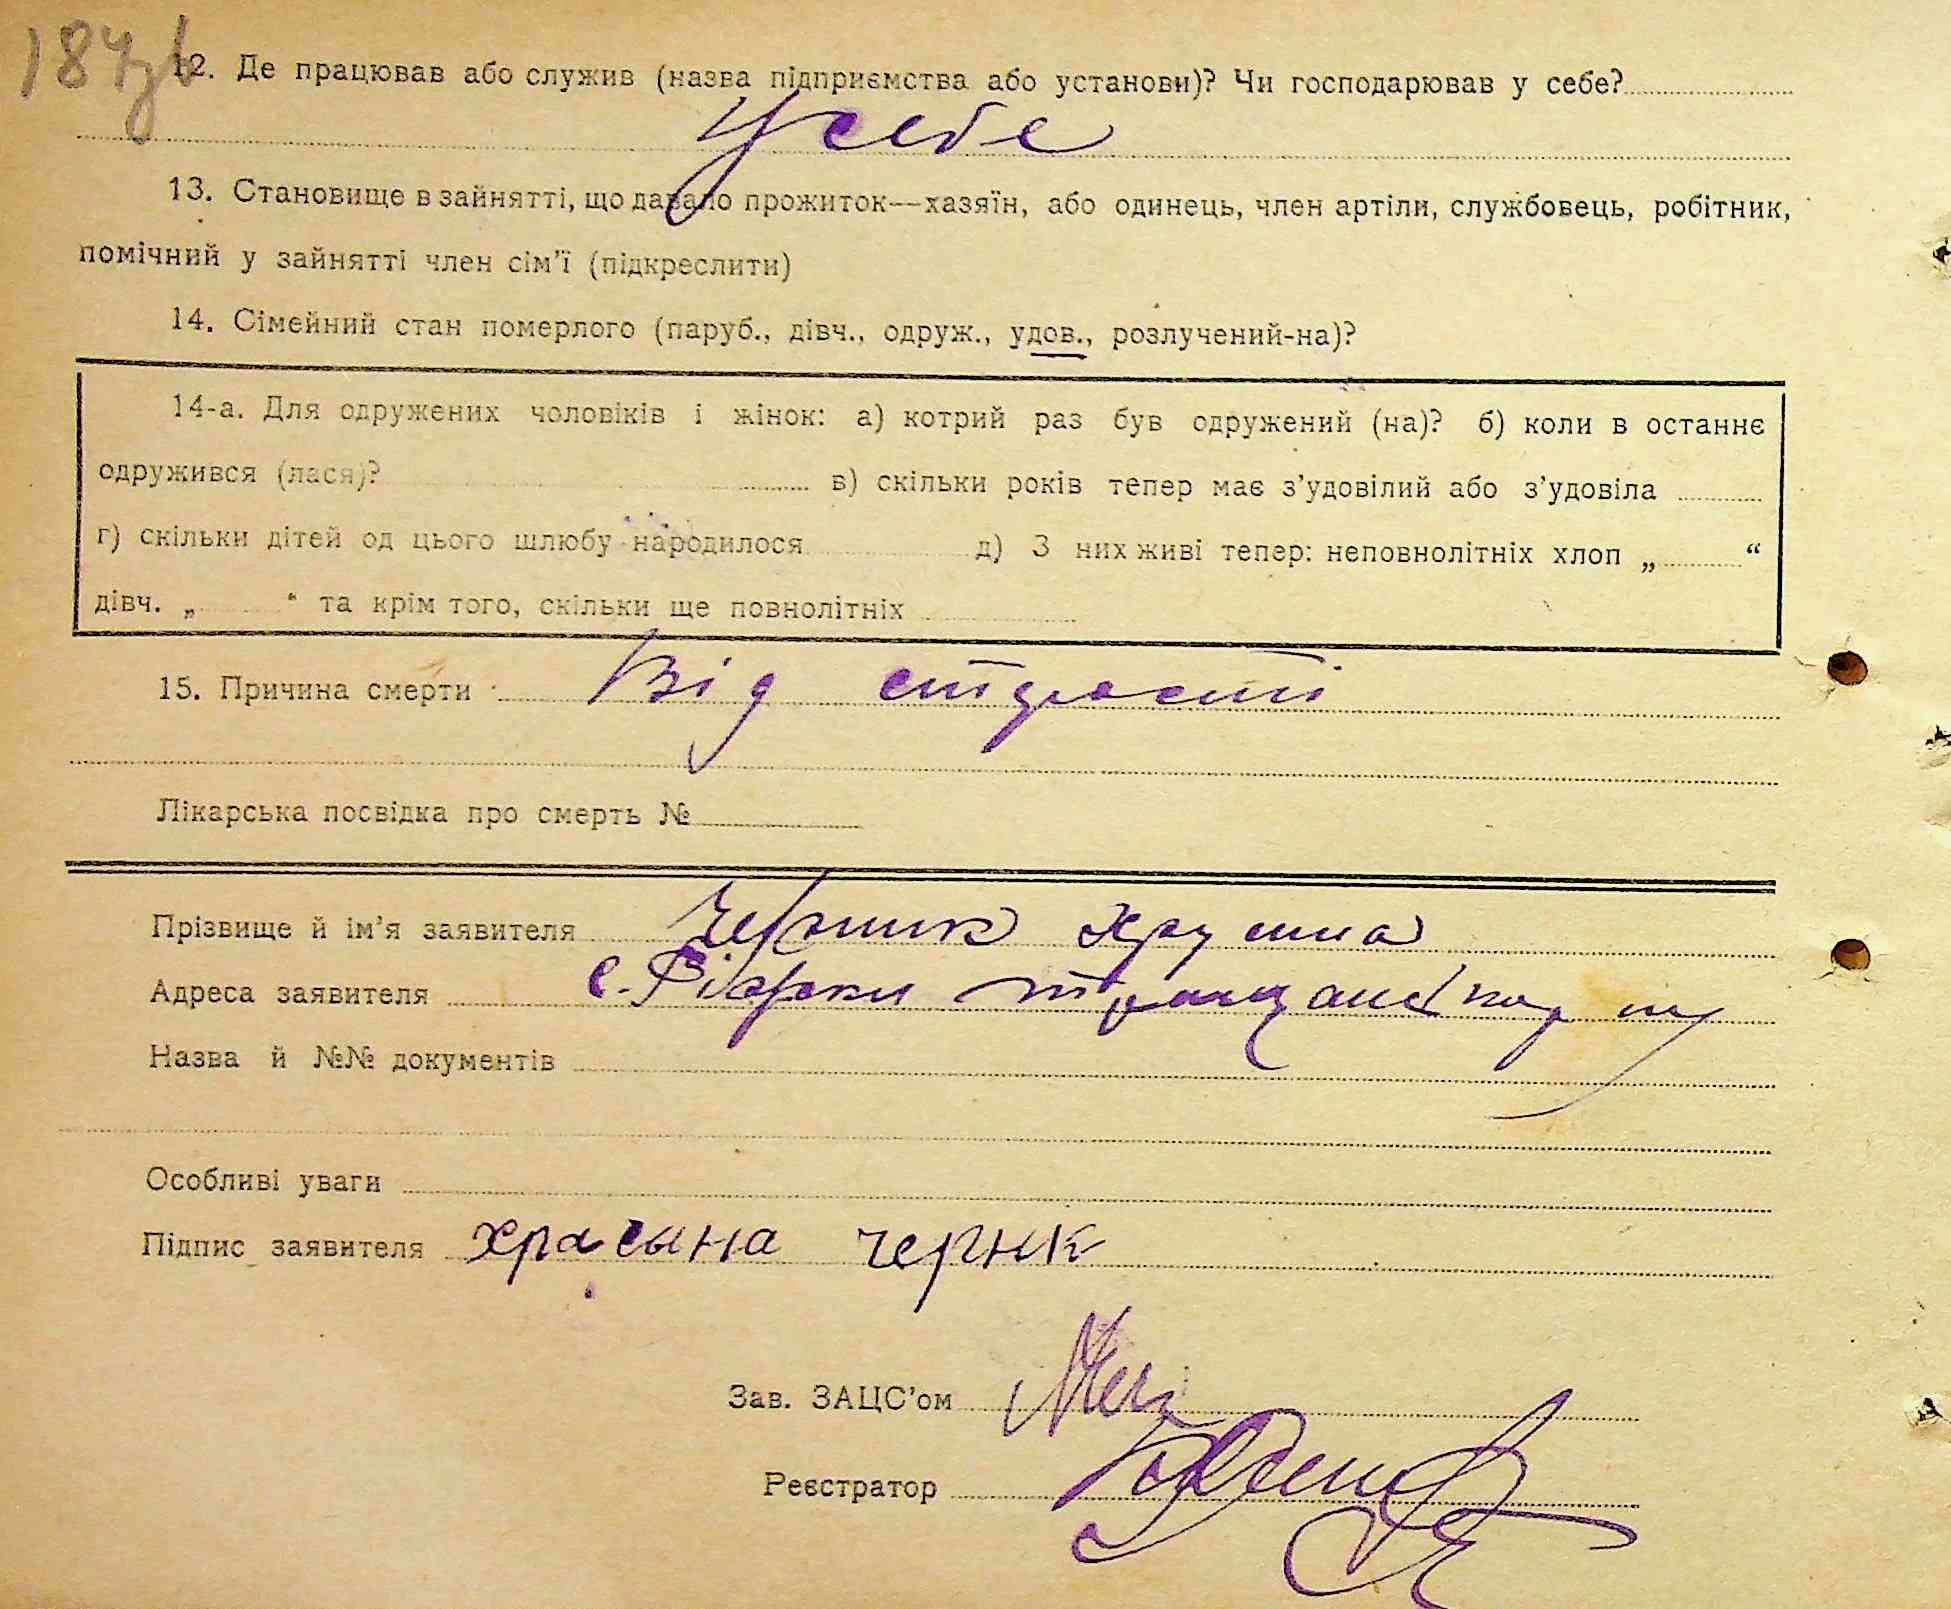 187зв
12. Де працював або служив (назва підприємства або установи)? Чи господарював у себе?
У себе
13. Становище в зайнятті, що давало прожиток—хазяїн, або одинець, член артіли, службовець, робітник,
помічний у зайнятті член сім’ї (підкреслити)
14. Сімейний стан померлого (паруб., дівч., одруж., удов., розлучений-на)?
14-а. Для одружених чоловіків і жінок: а) котрий раз був одружений (на)? б) коли в останнє
одружився (лася)? в) скільки років тепер має з’удовілий або з’удовіла
г) скільки дітей од цього шлюбу народилося д) З них живі тепер: неповнолітніх хлоп „ “
дівч. „ “ та крім того, скільки ще повнолітніх
15. Причина смерти Від старости
Лікарська посвідка про смерть №
Прізвище й ім’я заявителя Черник
Адреса заявителя с.
Назва й №№ документів
Особливі уваги
Підпис заявителя храсына чернк
Зав. ЗАЦС’ом
Реєстратор